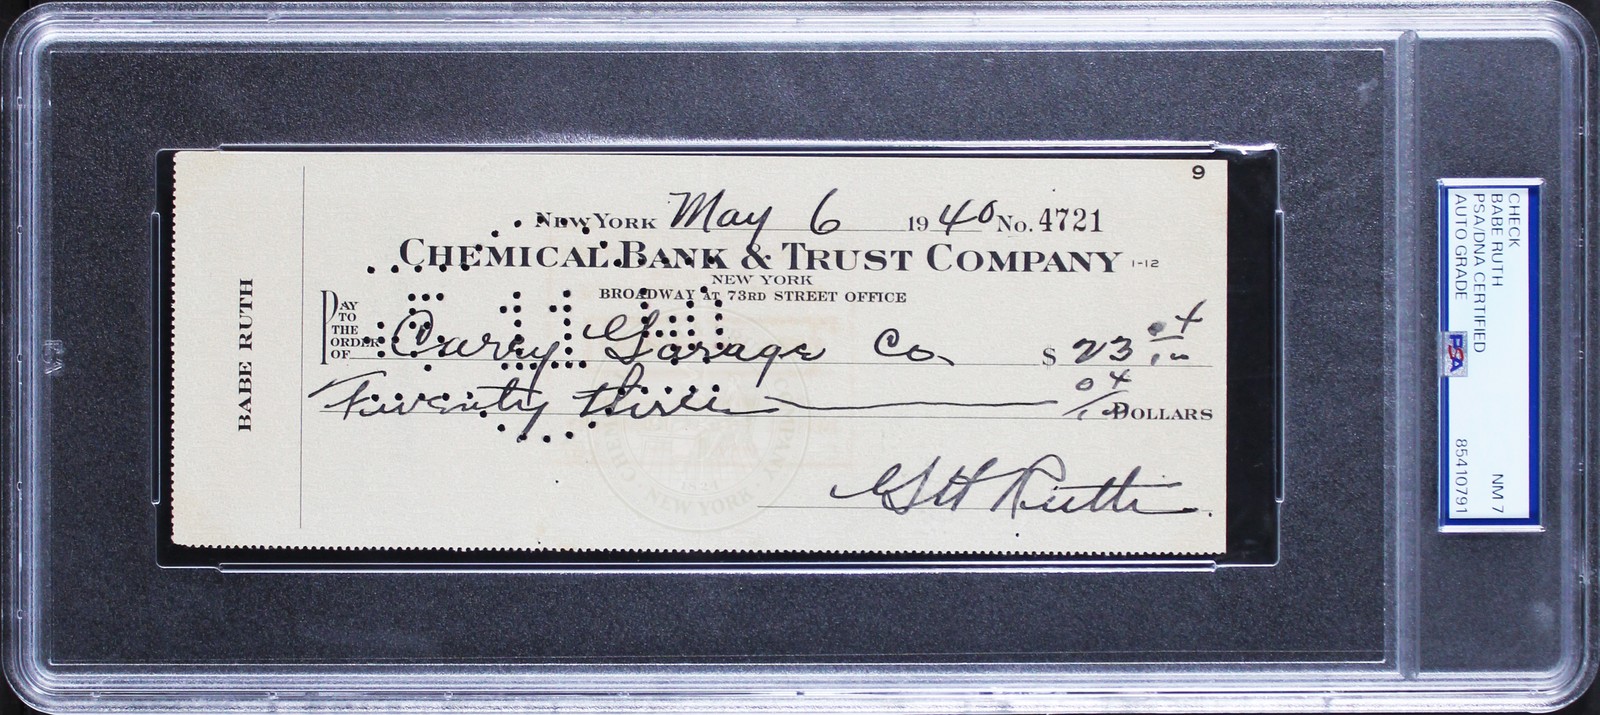 9
NEW YORK May 6 1940 No. 4721
CHEMICAL BANK & TRUST COMPANY 1-12
NEW YORK
BROADWAY AT 73RD STREET OFFICE
PAY TO THE ORDER OF Garage Co. $ 23 04
Twenty three 04 DOLLARS
GH Ruth
BABE RUTH
NEW YORK
1824
CHECK
BABE RUTH
PSA/DNA CERTIFIED
AUTO GRADE NM 7
85410791
PSA